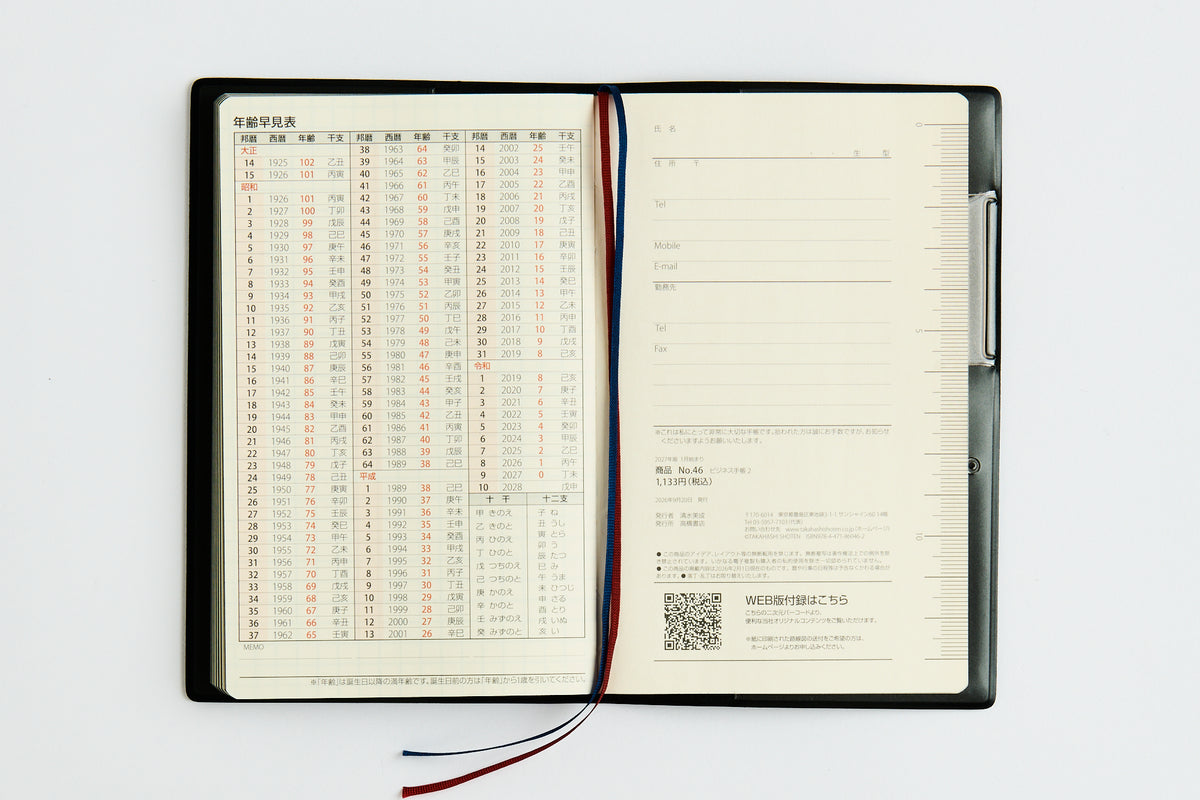 年齢早見表
邦暦 西暦 年齢 干支
大正
14 1925 102 乙丑
15 1926 101 丙寅
昭和
1 1926 101 丙寅
2 1927 100 丁卯
3 1928 99 戊辰
4 1929 98 己巳
5 1930 97 庚午
6 1931 96 辛未
7 1932 95 壬申
8 1933 94 癸酉
9 1934 93 甲戌
10 1935 92 乙亥
11 1936 91 丙子
12 1937 90 丁丑
13 1938 89 戊寅
14 1939 88 己卯
15 1940 87 庚辰
16 1941 86 辛巳
17 1942 85 壬午
18 1943 84 癸未
19 1944 83 甲申
20 1945 82 乙酉
21 1946 81 丙戌
22 1947 80 丁亥
23 1948 79 戊子
24 1949 78 己丑
25 1950 77 庚寅
26 1951 76 辛卯
27 1952 75 壬辰
28 1953 74 癸巳
29 1954 73 甲午
30 1955 72 乙未
31 1956 71 丙申
32 1957 70 丁酉
33 1958 69 戊戌
34 1959 68 己亥
35 1960 67 庚子
36 1961 66 辛丑
37 1962 65 壬寅
邦暦 西暦 年齢 干支
38 1963 64 癸卯
39 1964 63 甲辰
40 1965 62 乙巳
41 1966 61 丙午
42 1967 60 丁未
43 1968 59 戊申
44 1969 58 己酉
45 1970 57 庚戌
46 1971 56 辛亥
47 1972 55 壬子
48 1973 54 癸丑
49 1974 53 甲寅
50 1975 52 乙卯
51 1976 51 丙辰
52 1977 50 丁巳
53 1978 49 戊午
54 1979 48 己未
55 1980 47 庚申
56 1981 46 辛酉
57 1982 45 壬戌
58 1983 44 癸亥
59 1984 43 甲子
60 1985 42 乙丑
61 1986 41 丙寅
62 1987 40 丁卯
63 1988 39 戊辰
64 1989 38 己巳
平成
1 1989 38 己巳
2 1990 37 庚午
3 1991 36 辛未
4 1992 35 壬申
5 1993 34 癸酉
6 1994 33 甲戌
7 1995 32 乙亥
8 1996 31 丙子
9 1997 30 丁丑
10 1998 29 戊寅
11 1999 28 己卯
12 2000 27 庚辰
13 2001 26 辛巳
邦暦 西暦 年齢 干支
14 2002 25 壬午
15 2003 24 癸未
16 2004 23 甲申
17 2005 22 乙酉
18 2006 21 丙戌
19 2007 20 丁亥
20 2008 19 戊子
21 2009 18 己丑
22 2010 17 庚寅
23 2011 16 辛卯
24 2012 15 壬辰
25 2013 14 癸巳
26 2014 13 甲午
27 2015 12 乙未
28 2016 11 丙申
29 2017 10 丁酉
30 2018 9 戊戌
31 2019 8 己亥
令和
1 2019 8 己亥
2 2020 7 庚子
3 2021 6 辛丑
4 2022 5 壬寅
5 2023 4 癸卯
6 2024 3 甲辰
7 2025 2 乙巳
8 2026 1 丙午
9 2027 0 丁未
10 2028 戊申
十干
甲 きのえ
乙 きのと
丙 ひのえ
丁 ひのと
戊 つちのえ
己 つちのと
庚 かのえ
辛 かのと
壬 みずのえ
癸 みずのと
十二支
子 ね
丑 うし
寅 とら
卯 う
辰 たつ
巳 み
午 うま
未 ひつじ
申 さる
酉 とり
戌 いぬ
亥 い
MEMO
※「年齢」は誕生日以降の満年齢です。誕生日前の方は「年齢」から1歳を引いてください。
氏 名
生 型
住 所 〒
Tel
Mobile
E-mail
勤務先
Tel
Fax
※これは私にとって非常に大切な手帳です。拾われた方は誠にお手数ですが、お知らせ
くださいますようお願いいたします。
2027年版 1月始まり
商品 No.46 ビジネス手帳 2
1,133円(税込)
2026年9月20日 発行
発行者 清水美成 〒170-6014 東京都豊島区東池袋3-1-1 サンシャイン60 14階
発行所 高橋書店 Tel 03-5957-7103(代表)
お問い合わせ先 www.takahashishoten.co.jp (ホームページ)
©TAKAHASHI SHOTEN ISBN978-4-471-86046-2
● この商品のアイデア、レイアウト等の無断転用を禁じます。無断複写は著作権法上での例外を除
き禁止されています。いかなる電子複製も購入者の私的使用を除き一切認められていません。
● この商品の掲載内容は2026年2月1日現在のものです。暦や行事の日程等は予告なくかわる場合が
あります。 ● 落丁・乱丁はお取り替えいたします。
WEB版付録はこちら
こちらの二次元バーコードより、
便利な当社オリジナルコンテンツをご覧いただけます。
※紙に印刷された路線図の送付をご希望の方は、
ホームページよりお申し込みください。
0
5
10